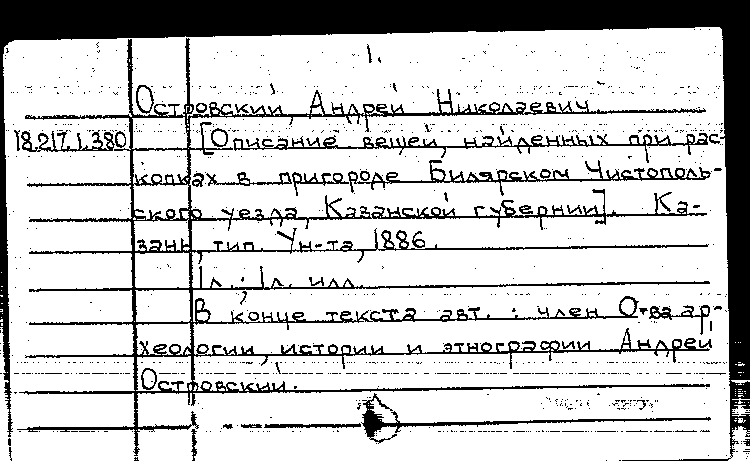 1.
Островский, Андрей Николаевич
18.217.1.380 [Описание вещей, найденных при рас-
копках в пригороде Билярском Чистополь-
ского уезда, Казанской губернии]. Ка-
зань, тип. Ун-та, 1886.
1л.; 1л. илл.
В конце текста авт.: член О-ва ар-
хеологии, истории и этнографии Андрей
Островский.